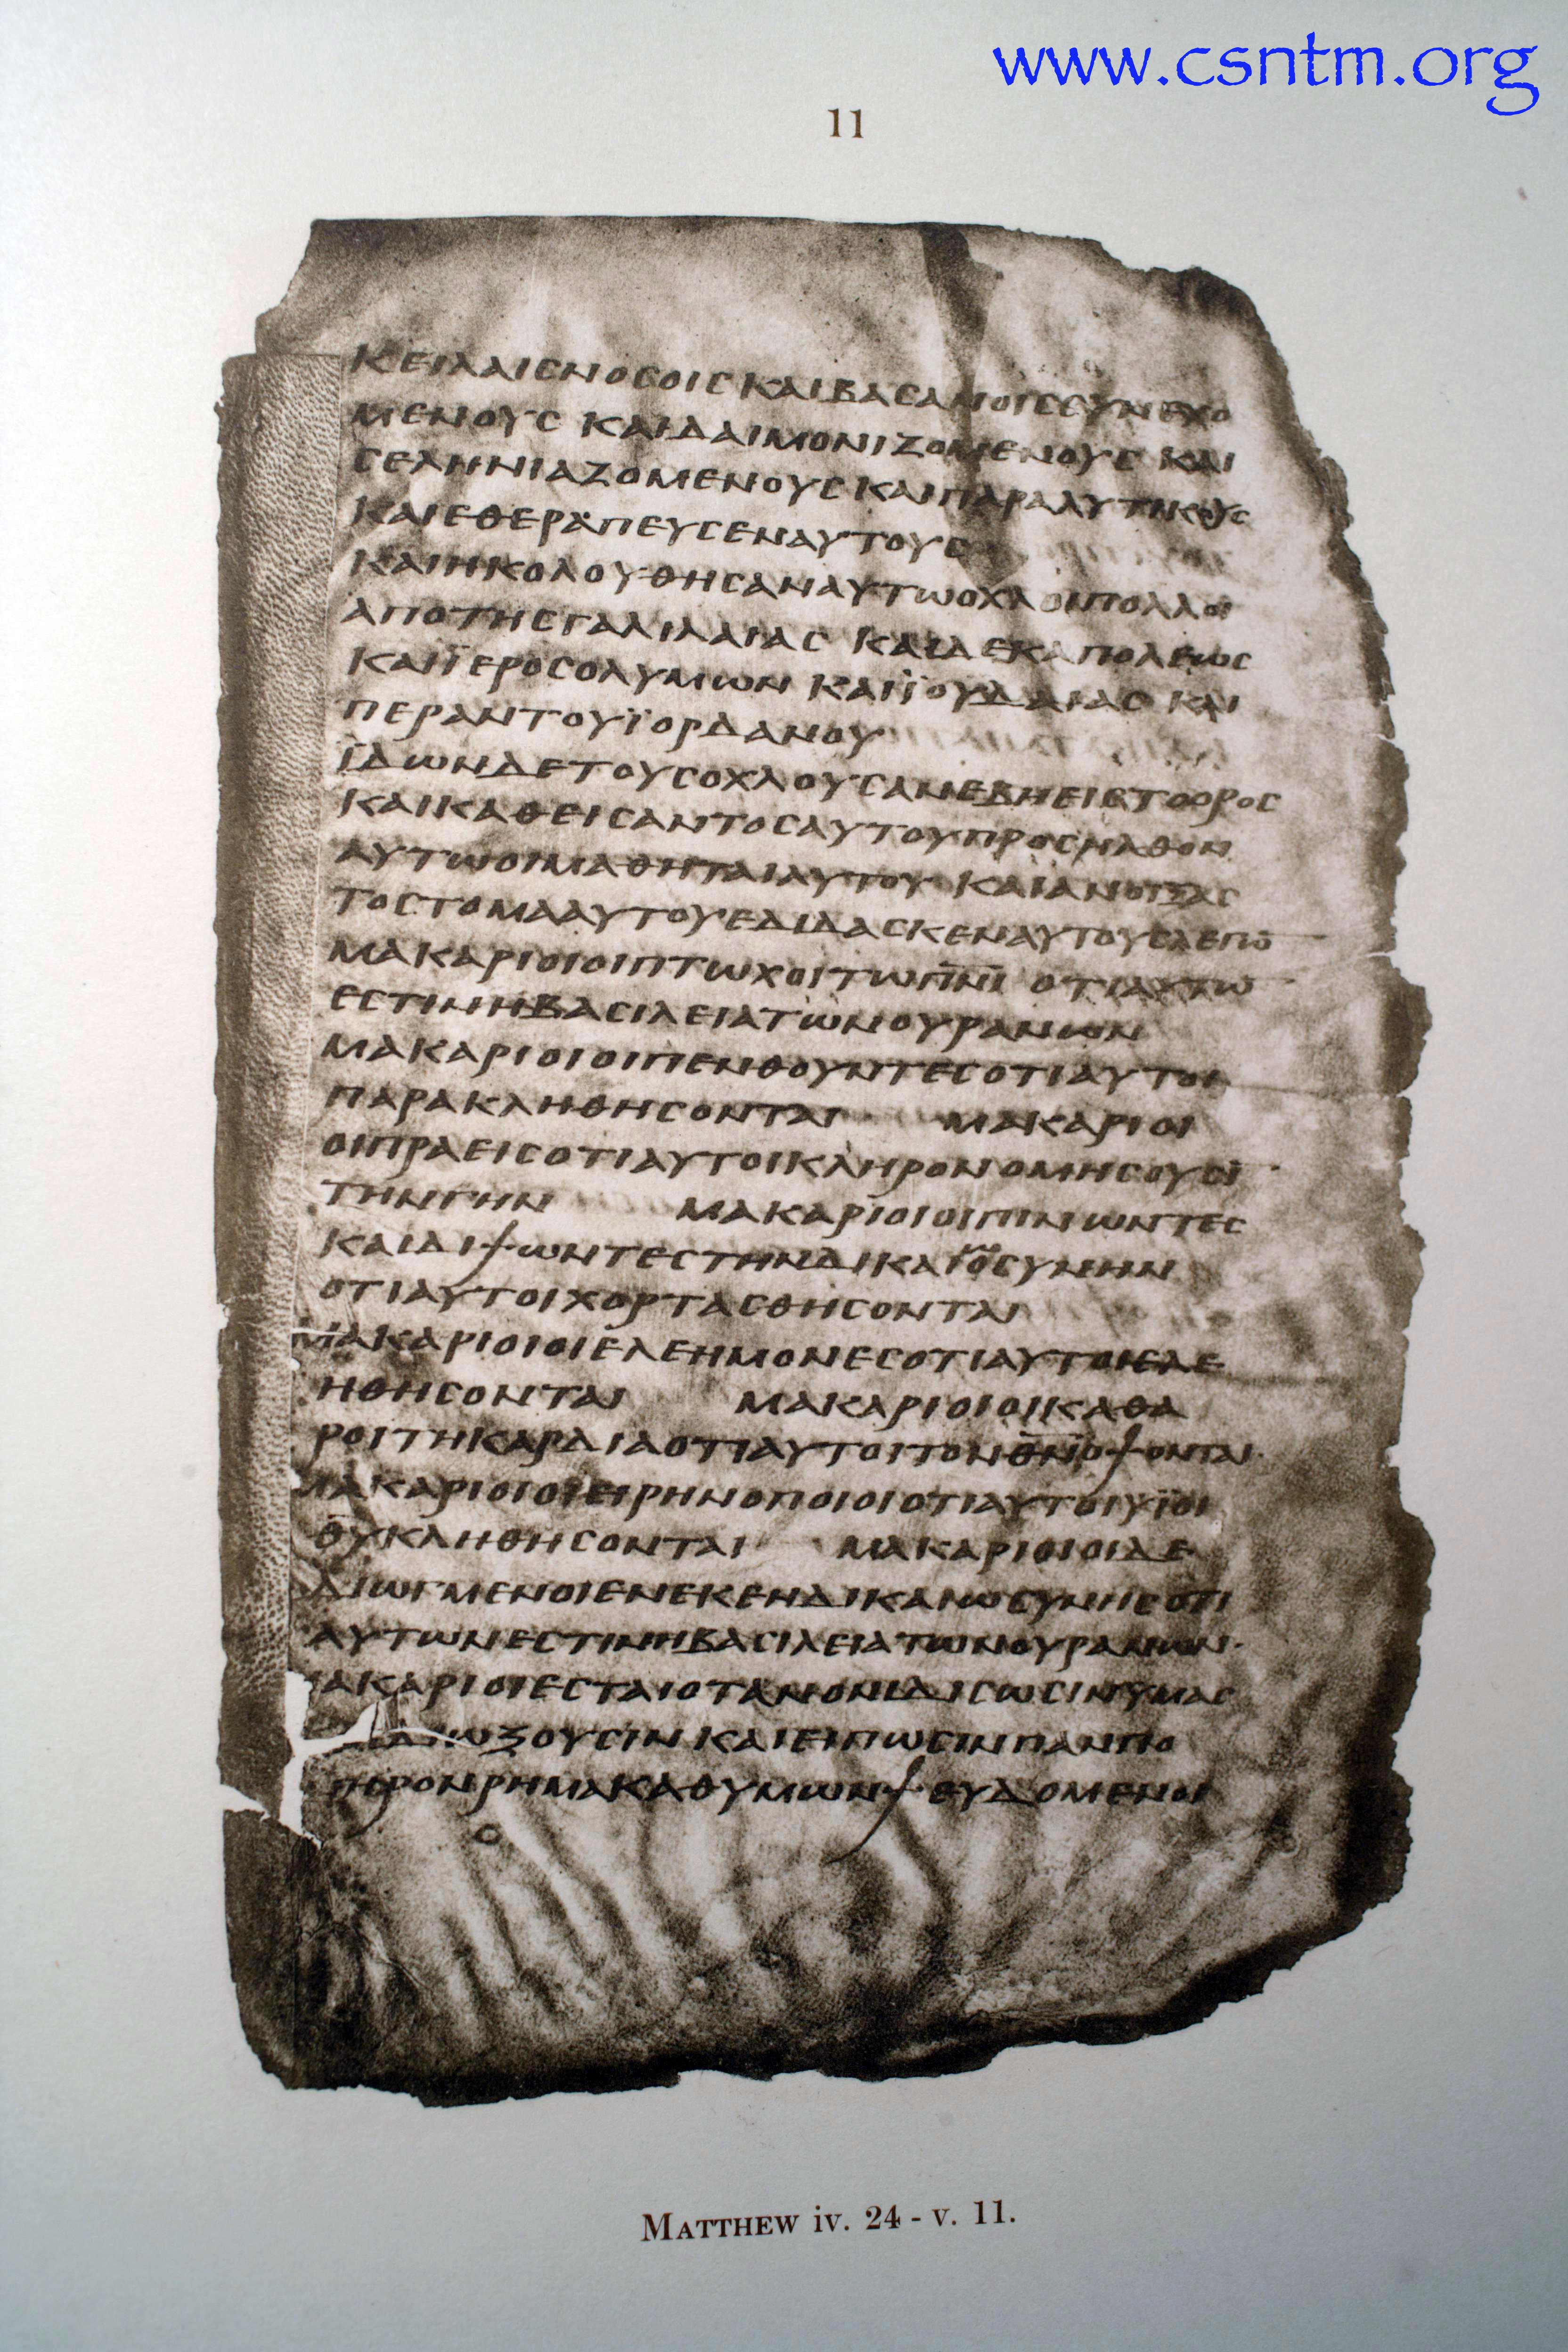 www.csntm.org
11
ΚΕΙΛΑΙC ΝΟCΟΙC ΚΑΙ ΒΑCΑΝΟΙC CΥΝΕΧΟ
ΜΕΝΟΥC ΚΑΙ ΔΑΙΜΟΝΙΖΟΜΕΝΟΥC ΚΑΙ
CΕΛΗΝΙΑΖΟΜΕΝΟΥC ΚΑΙ ΠΑΡΑΛΥΤΙΚΟΥC
ΚΑΙ ΕΘΕΡΑΠΕΥCΕΝ ΑΥΤΟΥC
ΚΑΙ ΗΚΟΛΟΥΘΗCΑΝ ΑΥΤΩ ΟΧΛΟΙ ΠΟΛΛΟΙ
ΑΠΟ ΤΗC ΓΑΛΙΛΑΙΑC ΚΑΙ ΔΕΚΑΠΟΛΕΩC
ΚΑΙ ΪΕΡΟCΟΛΥΜΩΝ ΚΑΙ ΪΟΥΔΑΙΑC ΚΑΙ
ΠΕΡΑΝ ΤΟΥ ΪΟΡΔΑΝΟΥ
ΪΔΩΝ ΔΕ ΤΟΥC ΟΧΛΟΥC ΑΝΕΒΗ ΕΙC ΤΟ ΟΡΟC
ΚΑΙ ΚΑΘΕΙCΑΝΤΟC ΑΥΤΟΥ ΠΡΟCΗΛΘΟΝ
ΑΥΤΩ ΟΙ ΜΑΘΗΤΑΙ ΑΥΤΟΥ ΚΑΙ ΑΝΟΙΞΑC
ΤΟ CΤΟΜΑ ΑΥΤΟΥ ΕΔΙΔΑCΚΕΝ ΑΥΤΟΥC ΛΕΓΩ̅
ΜΑΚΑΡΙΟΙ ΟΙ ΠΤΩΧΟΙ ΤΩ Π̅Ν̅Ι̅ ΟΤΙ ΑΥΤΩ̅
ΕCΤΙΝ Η ΒΑCΙΛΕΙΑ ΤΩΝ ΟΥΡΑΝΩΝ
ΜΑΚΑΡΙΟΙ ΟΙ ΠΕΝΘΟΥΝΤΕC ΟΤΙ ΑΥΤΟΙ
ΠΑΡΑΚΛΗΘΗCΟΝΤΑΙ ΜΑΚΑΡΙΟΙ
ΟΙ ΠΡΑΕΙC ΟΤΙ ΑΥΤΟΙ ΚΛΗΡΟΝΟΜΗCΟΥCΙ
ΤΗΝ ΓΗΝ ΜΑΚΑΡΙΟΙ ΟΙ ΠΙΝΩΝΤΕC
ΚΑΙ ΔΙΨΩΝΤΕC ΤΗΝ ΔΙΚΑΙΟCΥΝΗΝ
ΟΤΙ ΑΥΤΟΙ ΧΟΡΤΑCΘΗCΟΝΤΑΙ
ΜΑΚΑΡΙΟΙ ΟΙ ΕΛΕΗΜΟΝΕC ΟΤΙ ΑΥΤΟΙ ΕΛΕ
ΗΘΗCΟΝΤΑΙ ΜΑΚΑΡΙΟΙ ΟΙ ΚΑΘΑ
ΡΟΙ ΤΗ ΚΑΡΔΙΑ ΟΤΙ ΑΥΤΟΙ ΤΟΝ Θ̅Ν̅ ΟΨΟΝΤΑΙ
ΜΑΚΑΡΙΟΙ ΟΙ ΕΙΡΗΝΟΠΟΙΟΙ ΟΤΙ ΑΥΤΟΙ ΥΪΟΙ
Θ̅Υ̅ ΚΛΗΘΗCΟΝΤΑΙ ΜΑΚΑΡΙΟΙ ΟΙ ΔΕ
ΔΙΩΓΜΕΝΟΙ ΕΝΕΚΕΝ ΔΙΚΑΙΩCΥΝΗC ΟΤΙ
ΑΥΤΩΝ ΕCΤΙΝ Η ΒΑCΙΛΕΙΑ ΤΩΝ ΟΥΡΑΝΩΝ
ΑΚΑΡΙΟΙ ΕCΤΑΙ ΟΤΑΝ ΟΝΙΔΙCΩCΙΝ ΥΜΑC
ΩΞΟΥCΙΝ ΚΑΙ ΕΙΠΩCΙΝ ΠΑΝ ΠΟ
ΝΗΡΟΝ ΡΗΜΑ ΚΑΘ ΥΜΩΝ ΨΕΥΔΟΜΕΝΟΙ
MATTHEW iv. 24 - v. 11.